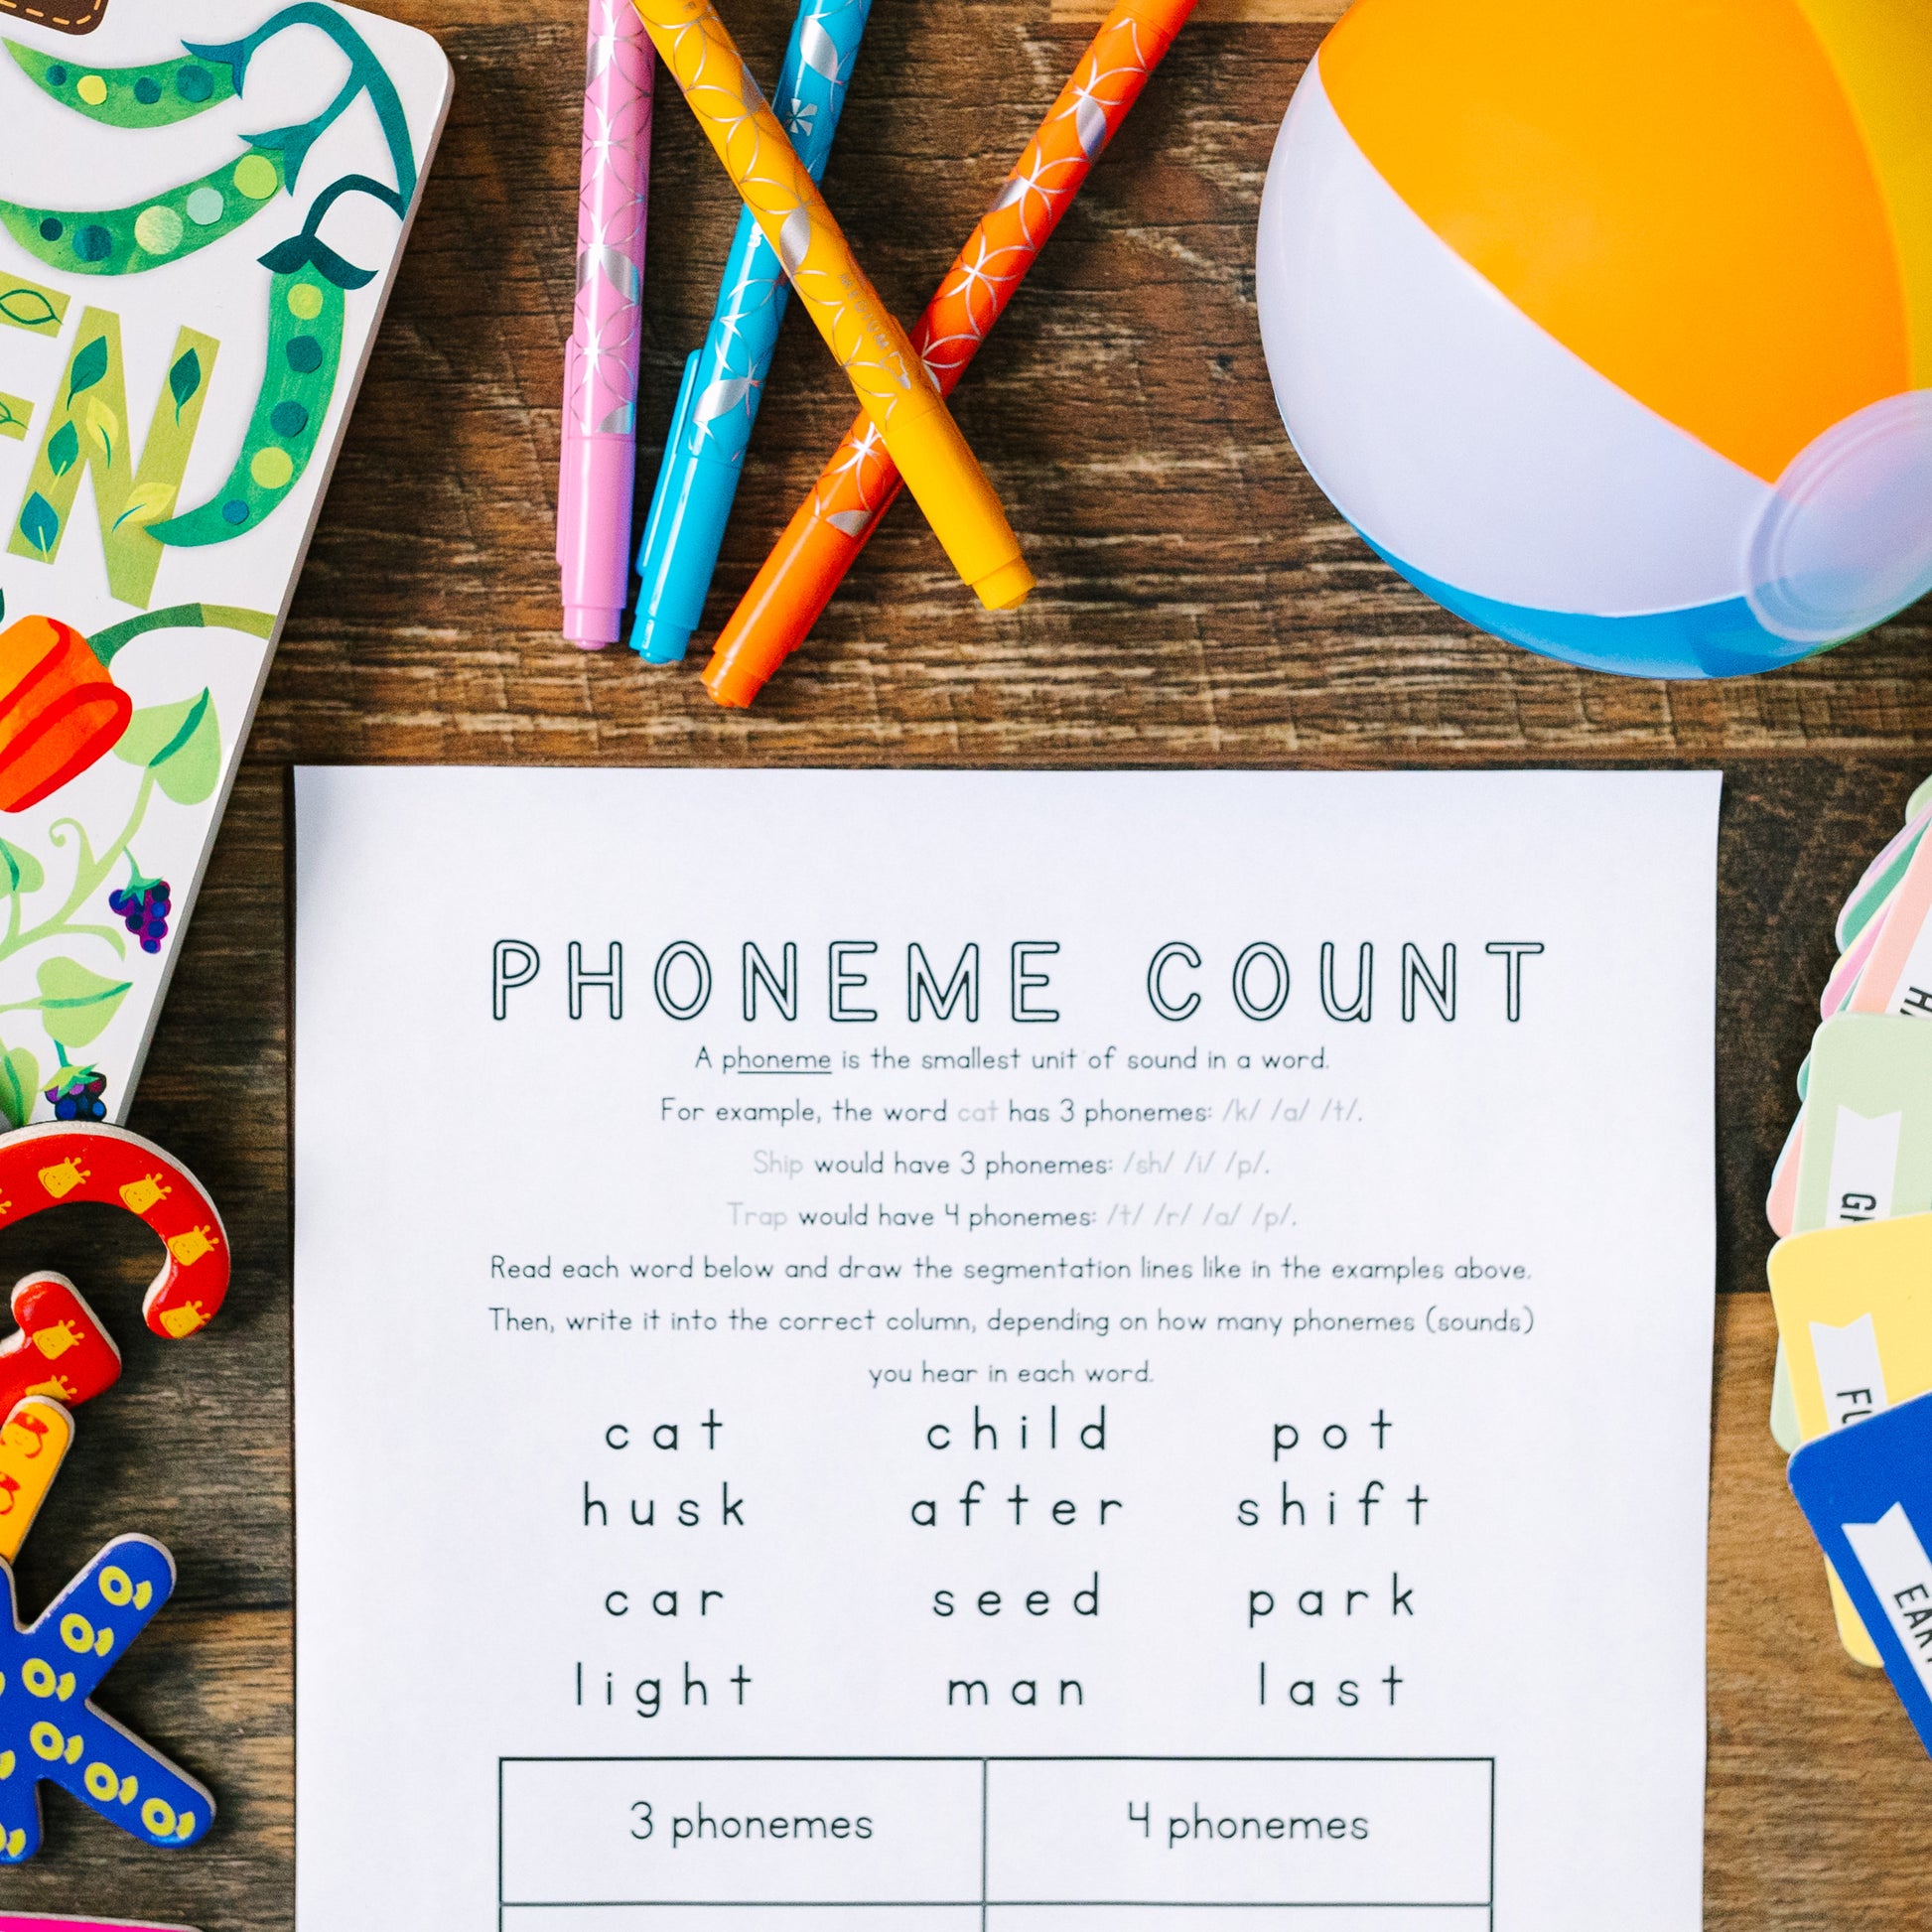 EN
MEDIUM
PHONEME COUNT
A phoneme is the smallest unit of sound in a word.
For example, the word cat has 3 phonemes: /k/ /a/ /t/.
Ship would have 3 phonemes: /sh/ /i/ /p/.
Trap would have 4 phonemes: /t/ /r/ /a/ /p/.
Read each word below and draw the segmentation lines like in the examples above.
Then, write it into the correct column, depending on how many phonemes (sounds)
you hear in each word.
cat child pot
husk after shift
car seed park
light man last
3 phonemes 4 phonemes